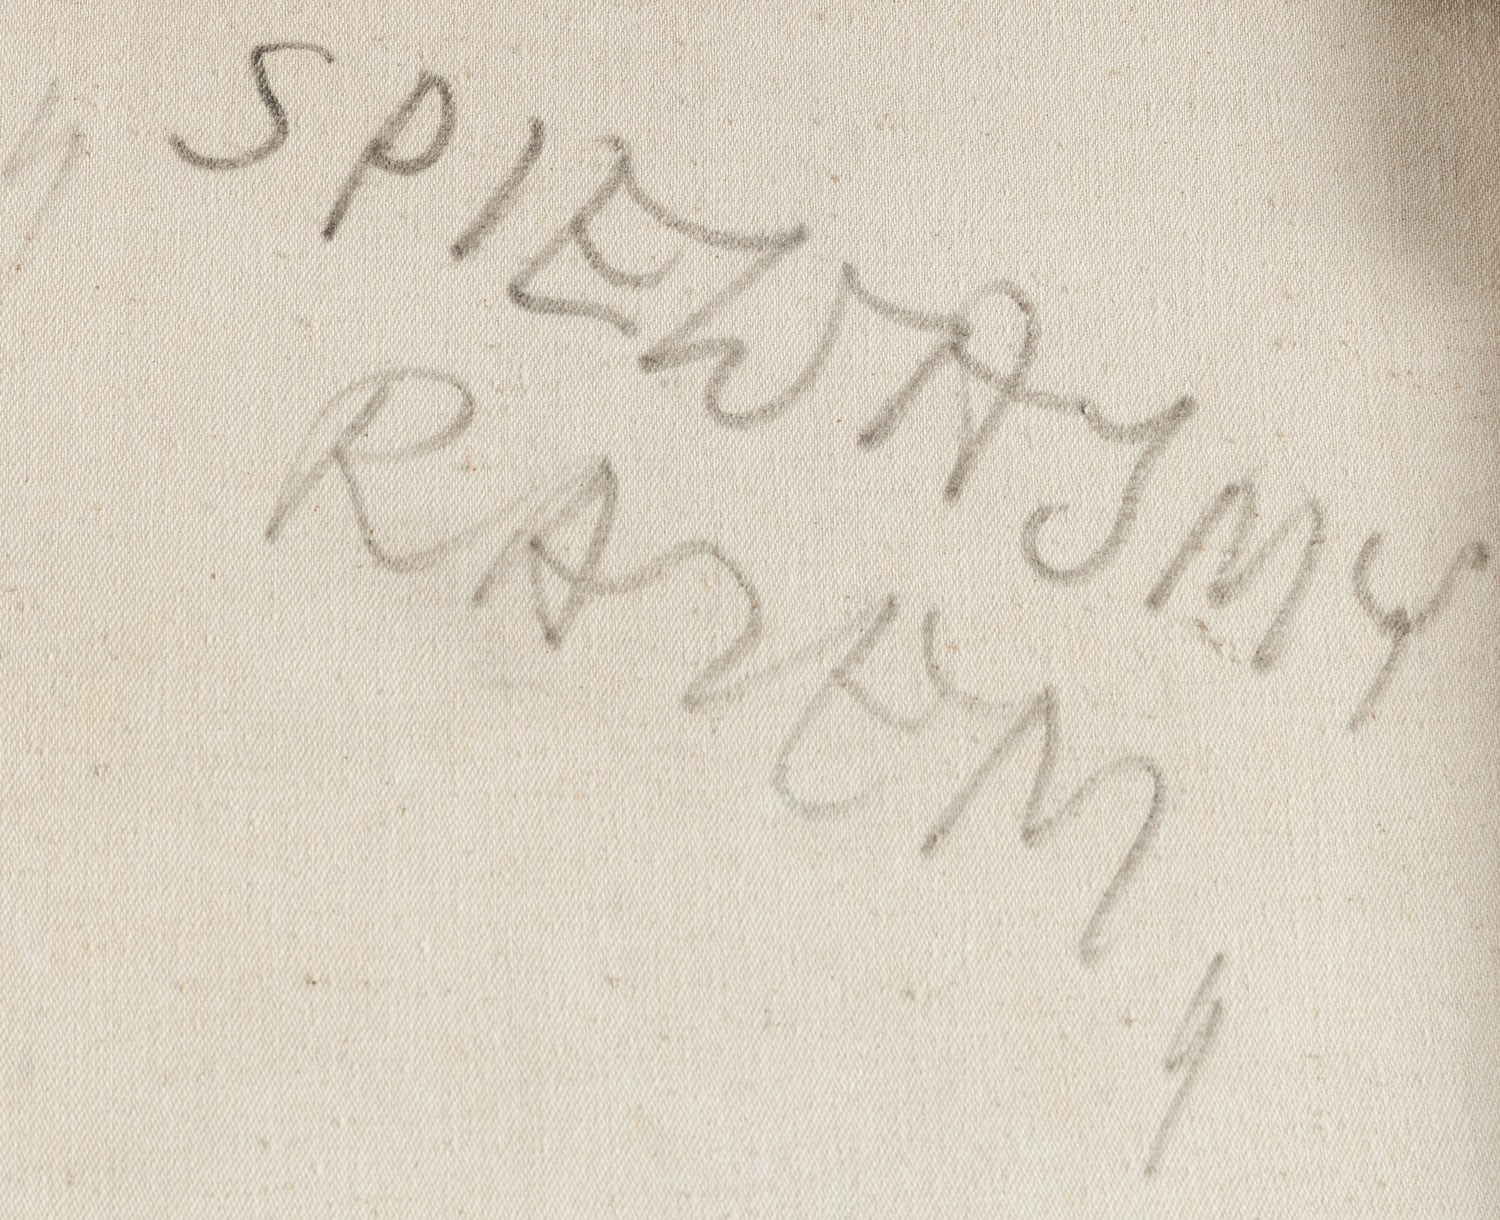 " SPIEWAJMY
RAZEM "